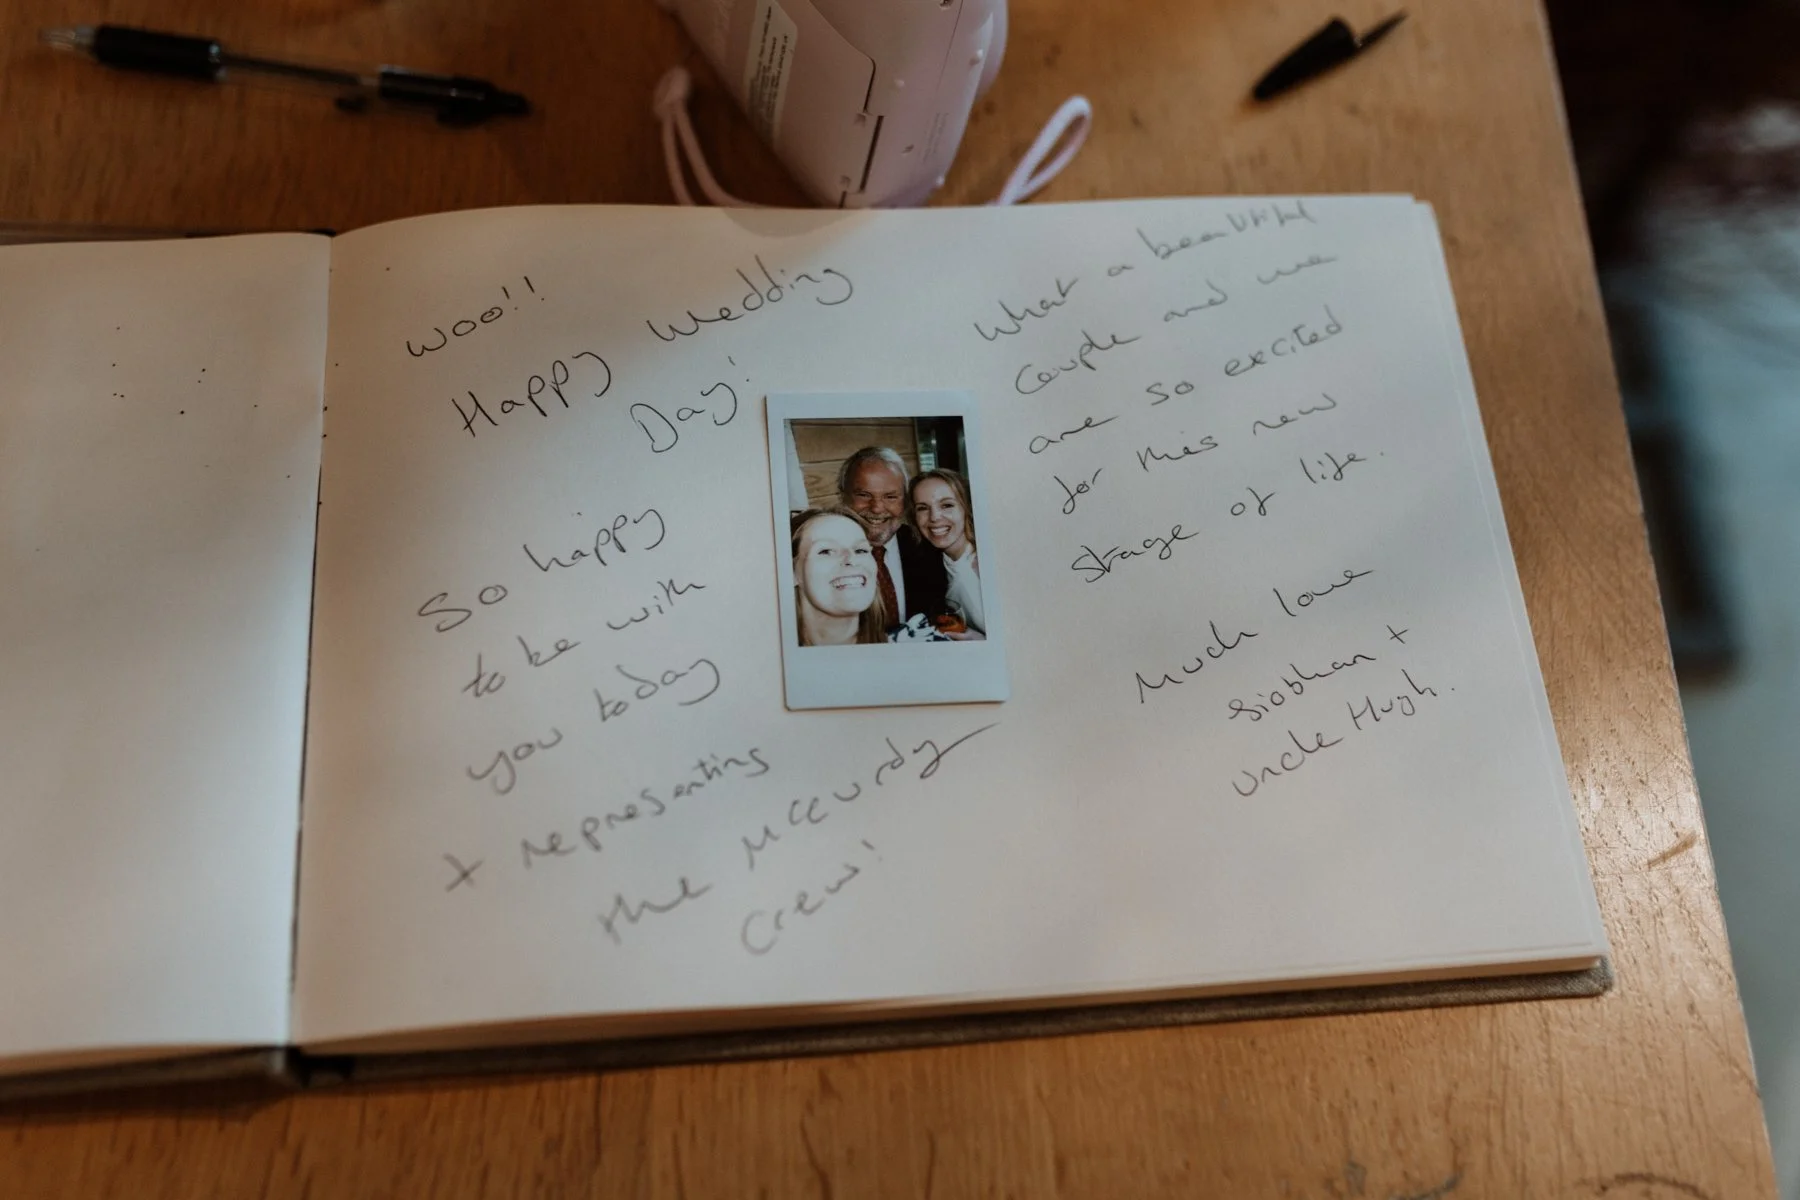 woo!!
Happy Wedding
Day!
So happy
to be with
you today
+ representing
the McCurdy
Crew!
What a beautiful
Couple and we
are so excited
for this new
strage of life.
Much love
Siobhan +
Uncle Hugh.